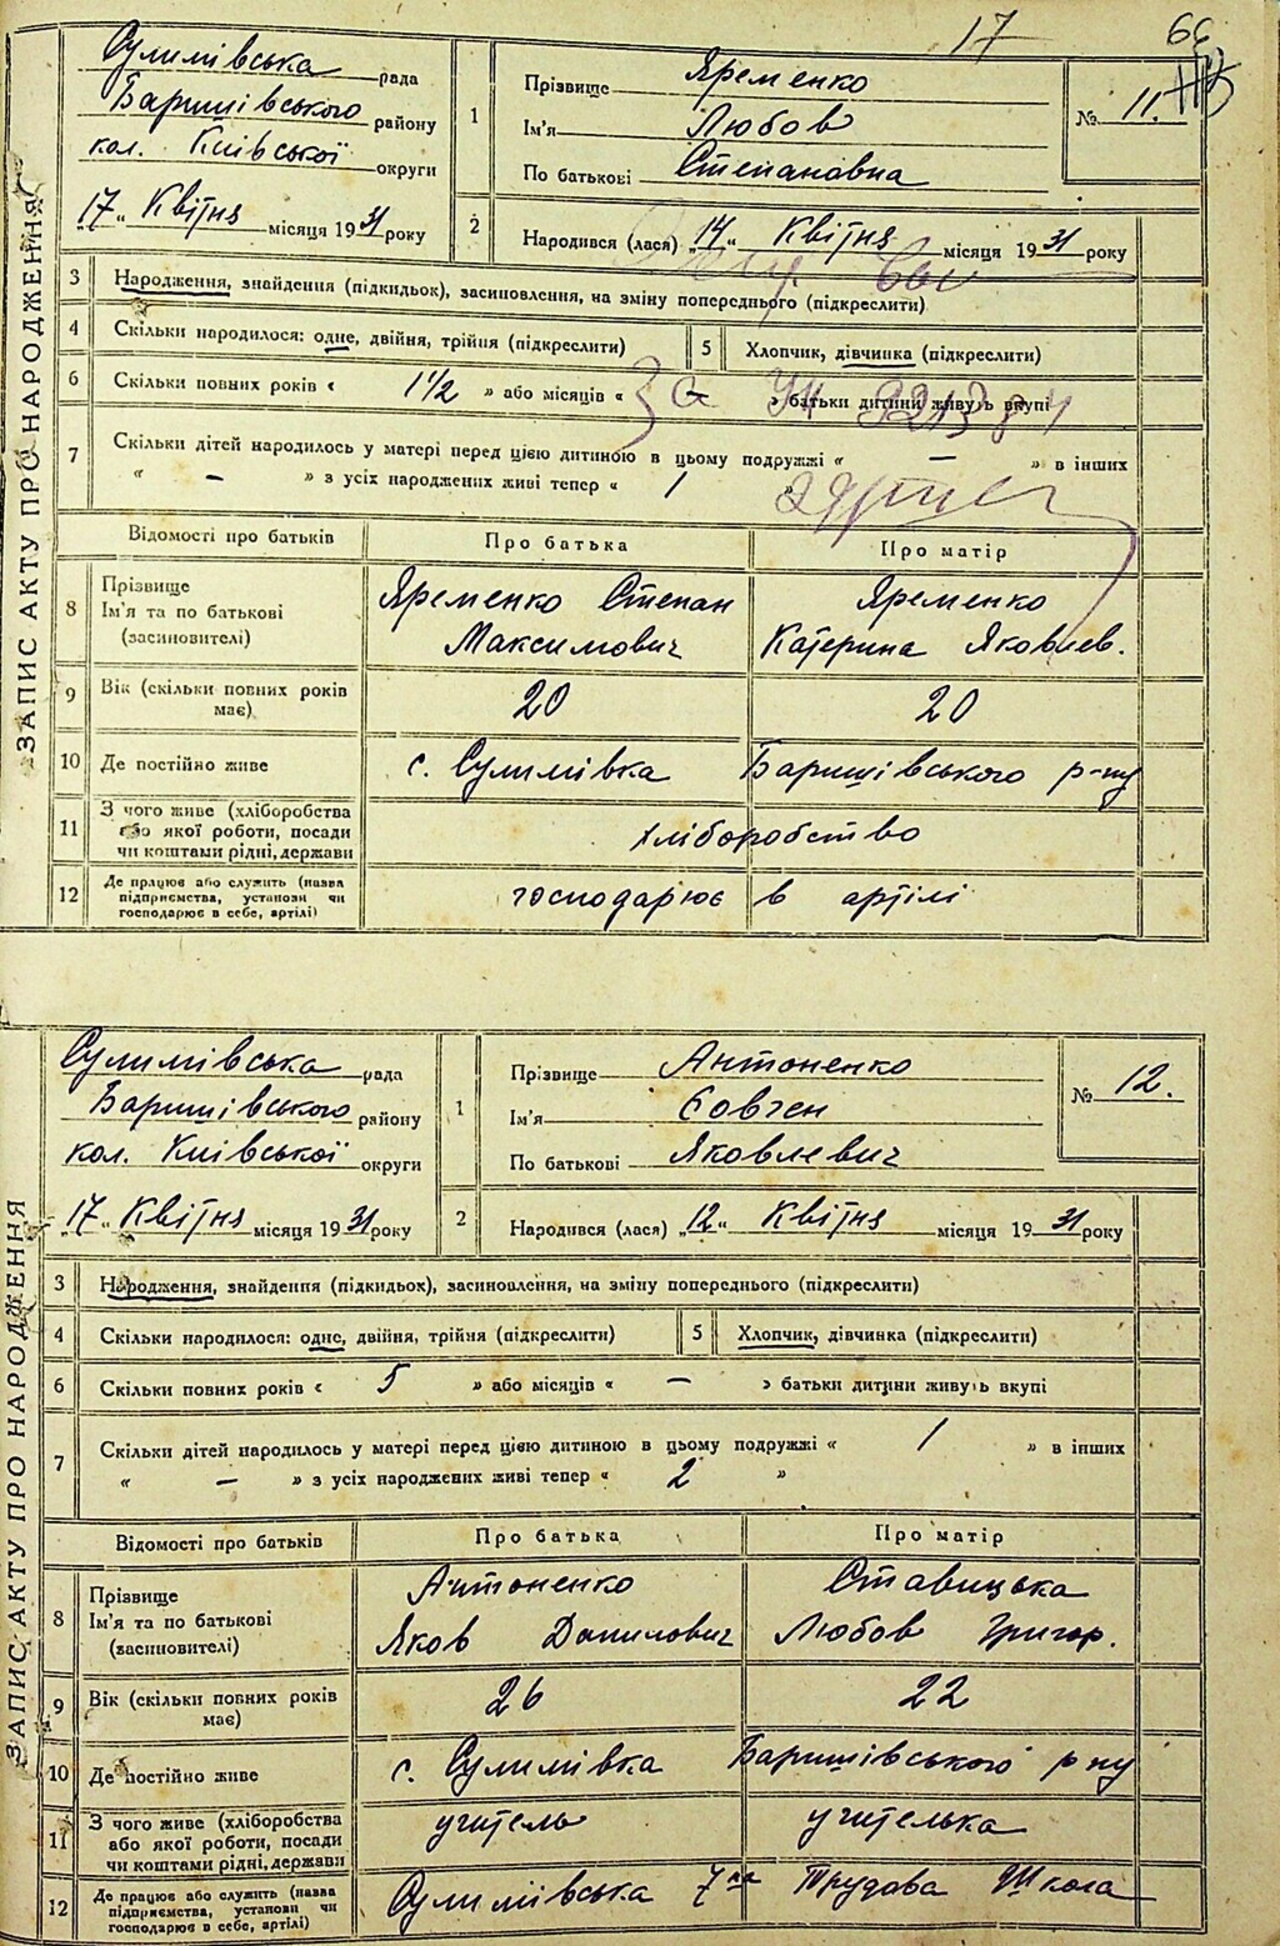 17 66
ЗАПИС АКТУ ПРО НАРОДЖЕННЯ
Сулимівська рада
Баришівського району
кол. Київської округи
„17“ Квітня місяця 1931 року
1 Прізвище Яременко
Ім'я Любов
По батькові Степановна
№ 11.
2 Народився (лася) „14“ Квітня місяця 1931 року
3 Народження, знайдення (підкидьок), засиновлення, на зміну попереднього (підкреслити)
4 Скільки народилося: одне, двійня, трійня (підкреслити) 5 Хлопчик, дівчинка (підкреслити)
6 Скільки повних років « 1 1/2 » або місяців « » батьки дитини живуть вкупі
7 Скільки дітей народилось у матері перед цією дитиною в цьому подружжі « — » в інших
« — » з усіх народжених живі тепер « 1 »
Відомості про батьків Про батька Про матір
8 Прізвище Ім'я та по батькові (засиновителі)
Яременко Степан Максимович
Яременко Катерина Яковлев.
9 Вік (скільки повних років має) 20 20
10 Де постійно живе с. Сулимівка Баришівського р-ну
11 З чого живе (хліборобства або якої роботи, посади чи коштами рідні, держави хліборобство
12 Де працює або служить (назва підприємства, установи чи господарює в себе, артілі) господарює в артілі
ЗАПИС АКТУ ПРО НАРОДЖЕННЯ
Сулимівська рада
Баришівського району
кол. Київської округи
„17“ Квітня місяця 1931 року
1 Прізвище Антоненко
Ім'я Євген
По батькові Яковлевич
№ 12.
2 Народився (лася) „12“ Квітня місяця 1931 року
3 Народження, знайдення (підкидьох), засиновлення, на зміну попереднього (підкреслити)
4 Скільки народилося: одне, двійня, трійня (підкреслити) 5 Хлопчик, дівчинка (підкреслити)
6 Скільки повних років « 5 » або місяців « — » батьки дитини живуть вкупі
7 Скільки дітей народилось у матері перед цією дитиною в цьому подружжі « 1 » в інших
« — » з усіх народжених живі тепер « 2 »
Відомості про батьків Про батька Про матір
8 Прізвище Ім'я та по батькові (засиновителі)
Антоненко Яков Данилович
Ставицька Любов Григор.
9 Вік (скільки повних років має) 26 22
10 Де постійно живе с. Сулимівка Баришівського р-ну
11 З чого живе (хліборобства або якої роботи, посади чи коштами рідні, держави учитель учителька
12 Де працює або служить (назва підприємства, установи чи господарює в себе, артілі) Сулимівська 7на Трудова Школа